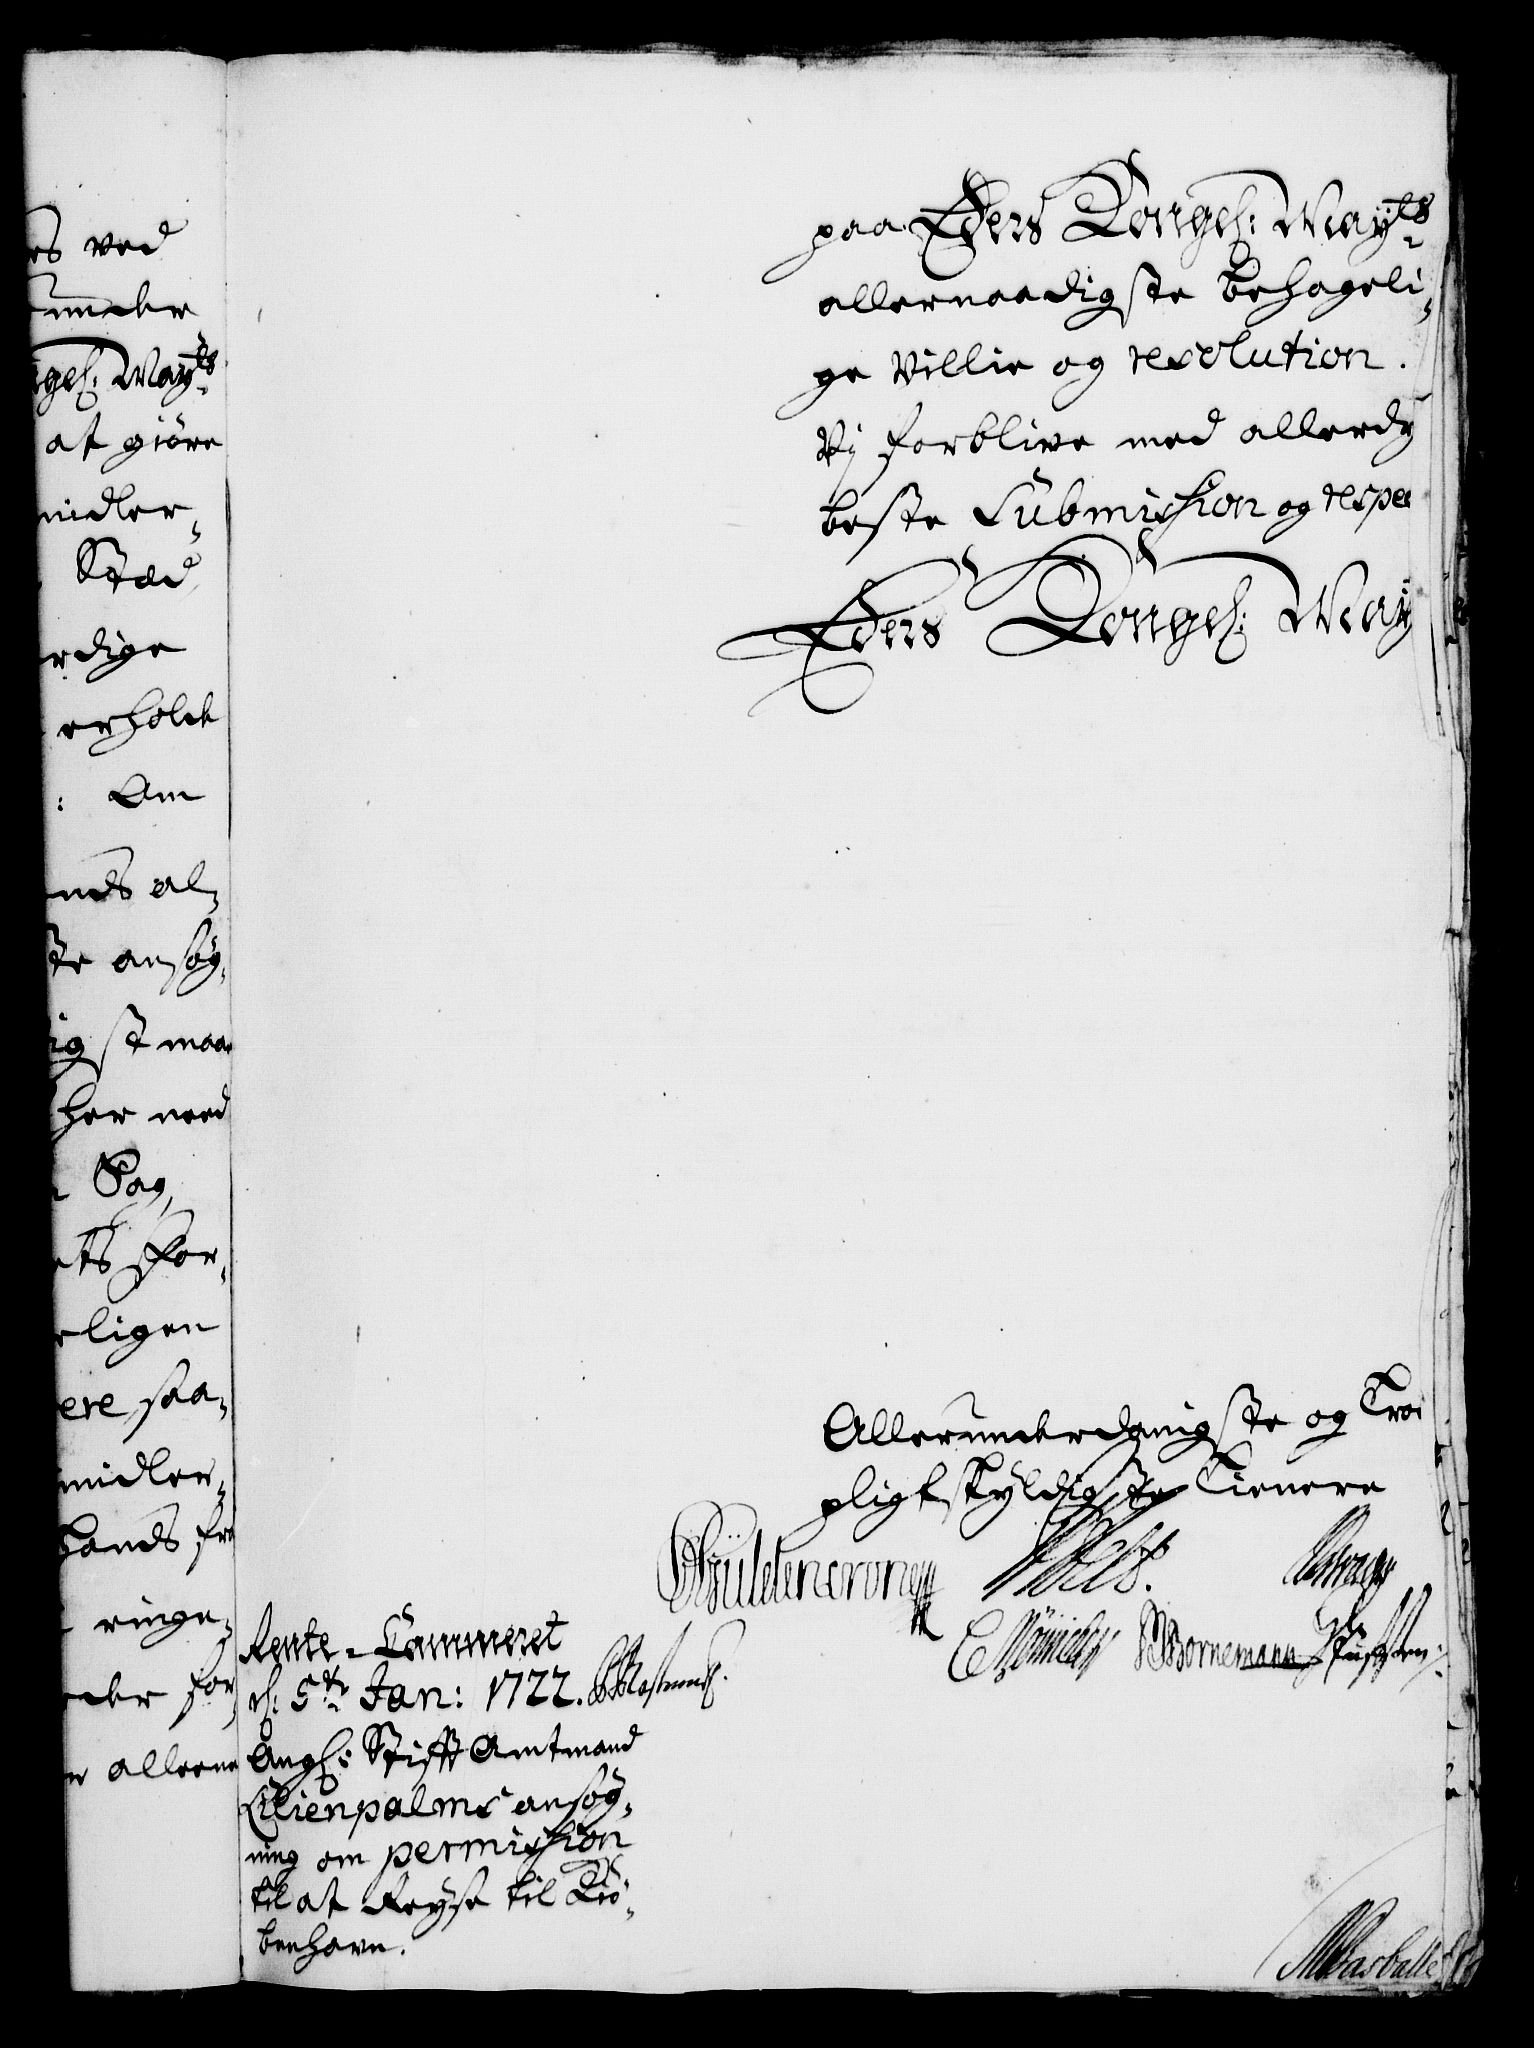 es ved
under
gel: Mayts
at giöre
midler-
Stæd
rdige
erholdt
: Om
nds al-
te ansög-
igst maa
her need
Sag,
ets For-
rligen
ere saa-
midler-
hands fra
ringe-
der for-
allerne
paa Eders Kongel: Mayts
allernaadigste behageli-
ge Villie og resolution.
Vj forblive med allerdy
beste Submission og respec
Eders Kongel: May
Allerunderdanigste og Troe
pligtskyldigste Tienere
Güldencrone
C Wöinichen Bornemann
Rente-Cammeret
d: 5te Jan: 1722.
Angl: Stifft Amtmand
Lilienpalms ansög-
ning om permission
til at Reyse til Kiö-
benhavn.